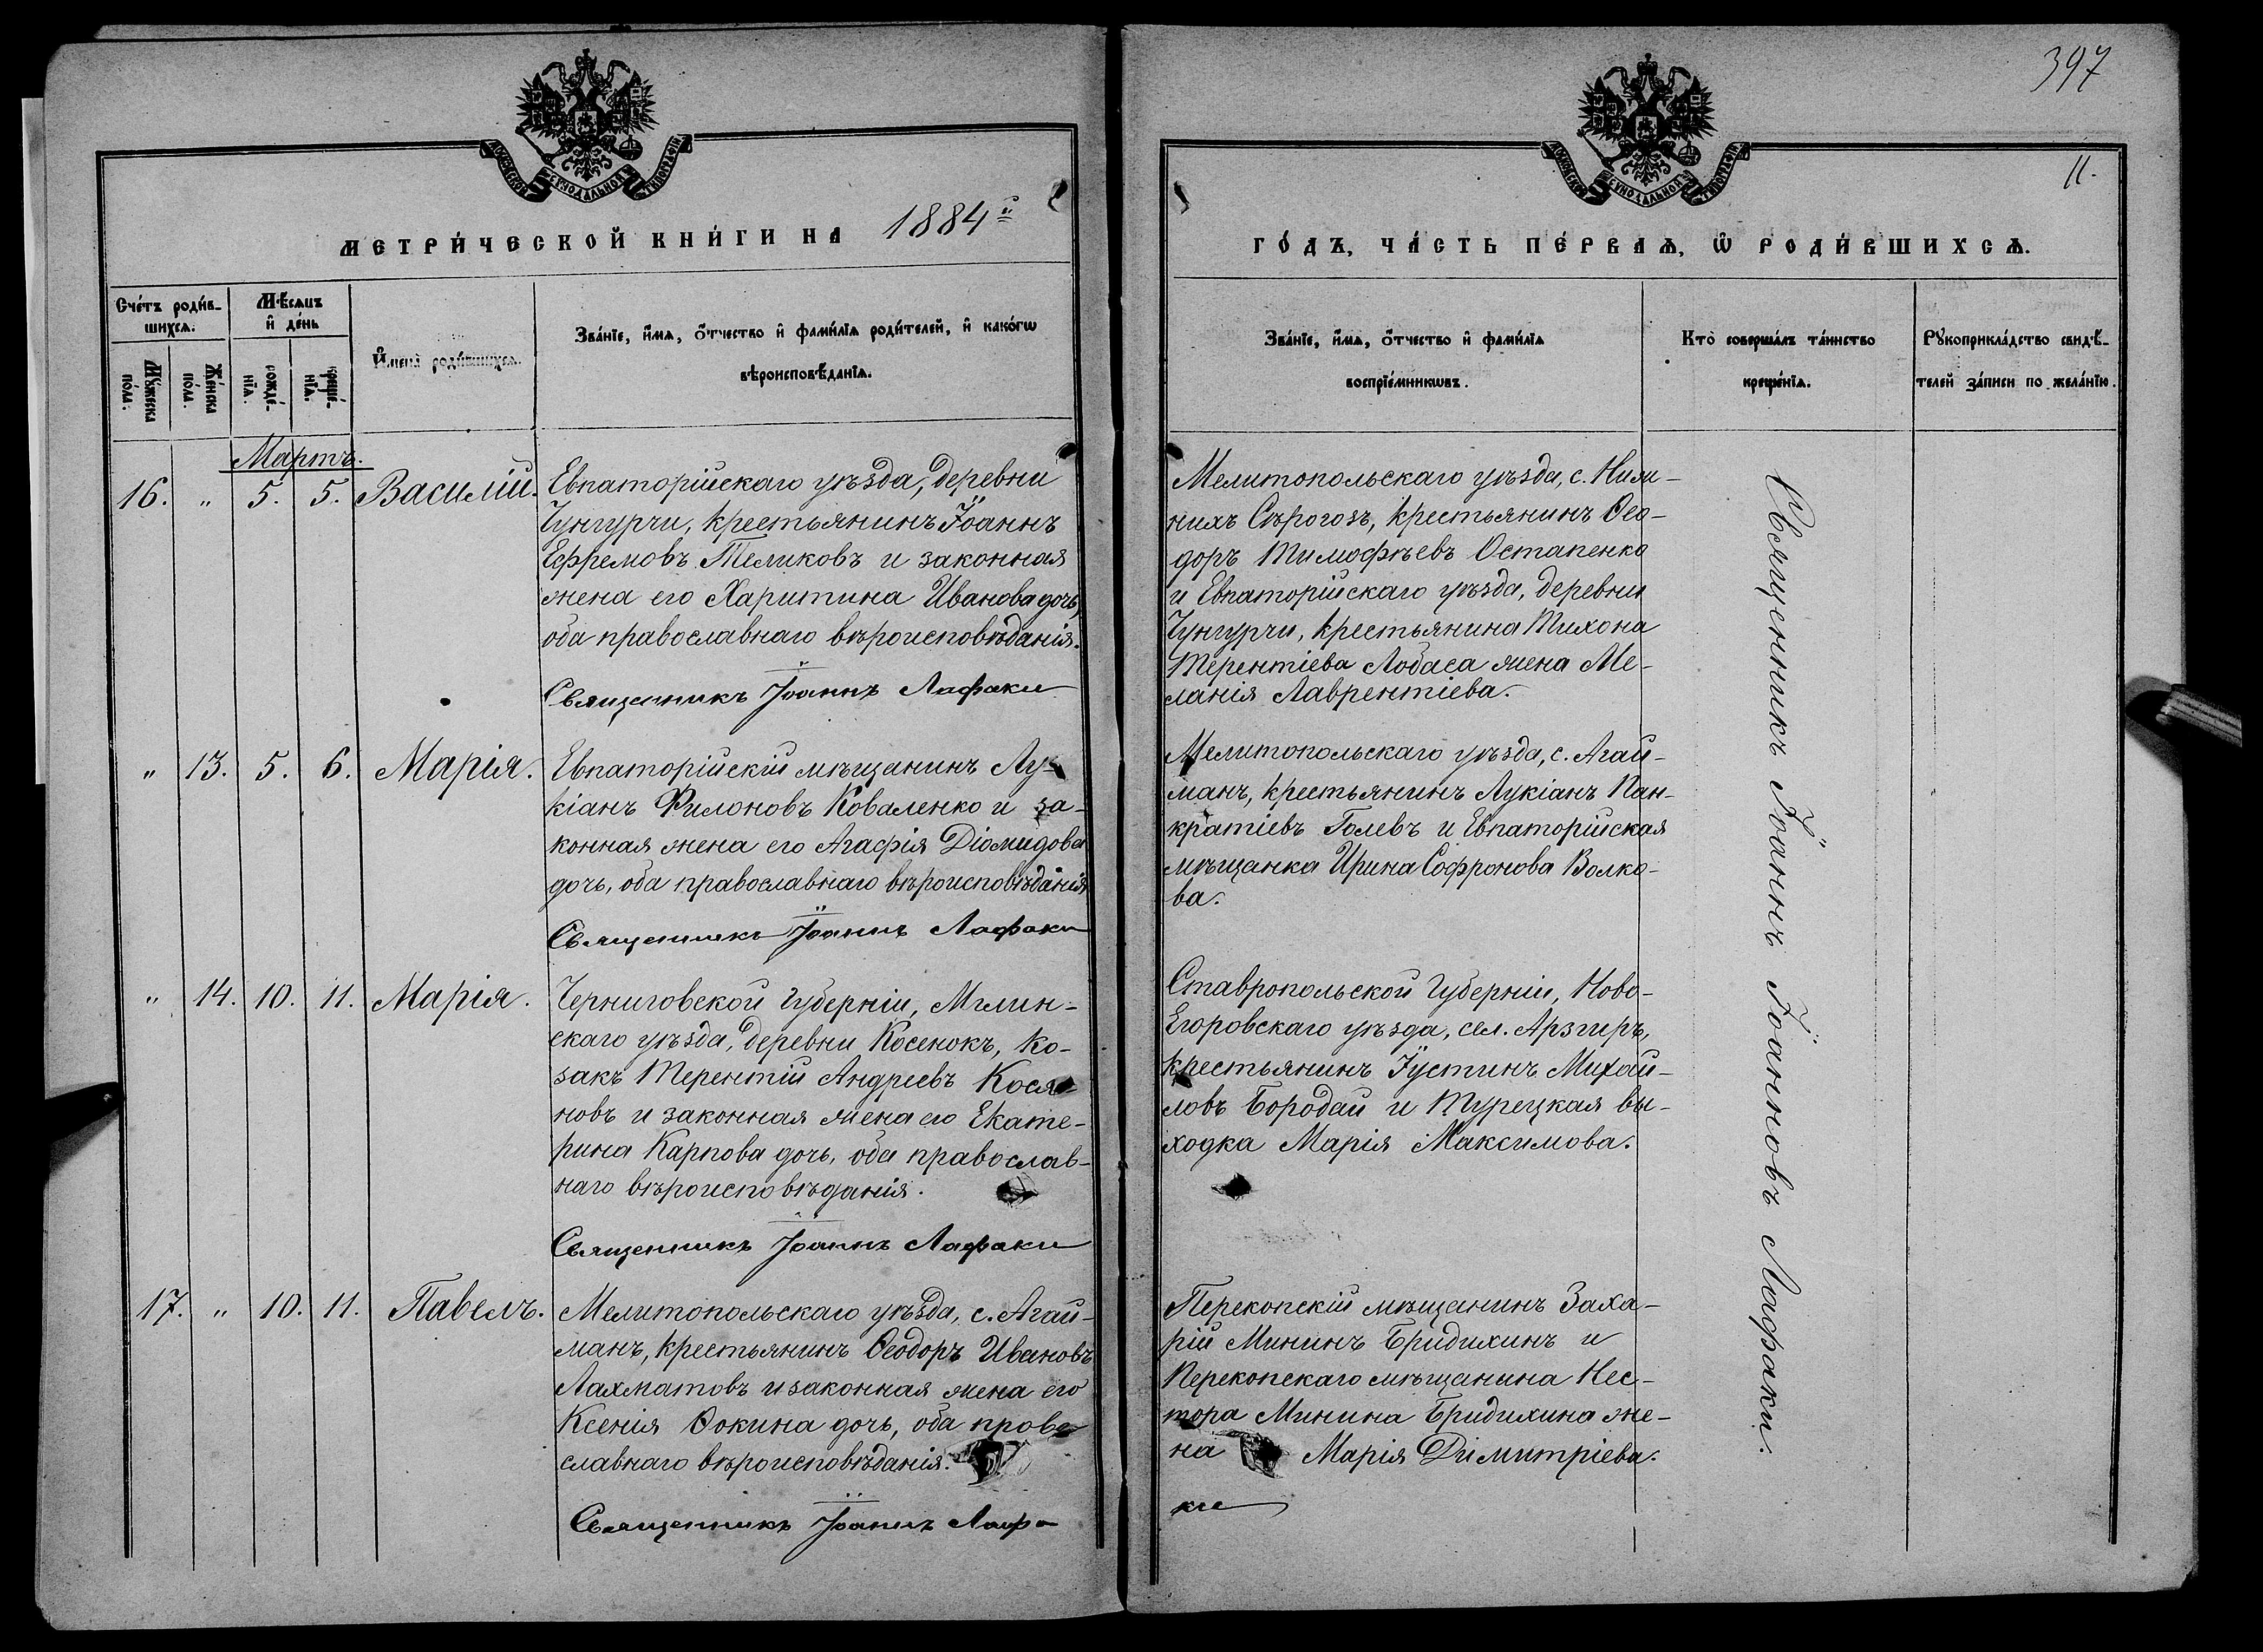 397
11.
МОСКОВСКОЙ СѴНОДАЛЬНОЙ ТИПОГРАФІИ
МОСКОВСКОЙ СѴНОДАЛЬНОЙ ТИПОГРАФІИ
МЕТРИ́ЧЕСКОЙ КНИ́ГИ НА 1884й
ГО́ДЪ, ЧА́СТЬ ПЕ́РВАѦ, Ѡ҆ РОДИ́ВШИХСѦ.
Сче́тъ роди́в-
шихсѧ.
Мꙋ́жеска по́ла.
Же́нска по́ла.
Мѣ́сѧцъ
и҆ де́нь
рожде́-
нїѧ.
креще́-
нїѧ.
И҆мена̀ роди́вшихсѧ.
Зва́нїе, и҆́мѧ, ѻ҆́тчество и҆ фами́лїѧ роди́телей, и҆ како́гѡ
вѣроисповѣ́данїѧ.
Зва́нїе, и҆́мѧ, ѻ҆́тчество и҆ фами́лїѧ
воспрїе́мникѡвъ.
Кто̀ соверша́лъ та́инство
креще́нїѧ.
Рꙋкоприкла́дство свидѣ́-
телей за́писи по жела́нїю.
Мартъ.
16. " 5. 5. Василій.
Евпаторійскаго уѣзда, деревни
Чунгурчи, крестьянинъ Іоаннъ
Ефремовъ Теликовъ и законная
жена его Харитина Иванова дочь,
оба православнаго вѣроисповѣданія.
Священникъ Іоаннъ Лафаки
Мелитопольскаго уѣзда, с. Ниж-
нихъ Сѣрогозъ, крестьянинъ Ѳео-
доръ Тимофѣевъ Остапенко
и Евпаторійскаго уѣзда, деревни
Чунгурчи, крестьянина Тихона
Терентіева Лобаса жена Ме-
ланія Лаврентіева.
" 13. 5. 6. Марія.
Евпаторійскій мѣщанинъ Лу-
кіанъ Филоновъ Коваленко и за-
конная жена его Агафія Діомидова
дочь, оба православнаго вѣроисповѣданія
Священникъ Іоаннъ Лафаки
Мелитопольскаго уѣзда, с. Агай-
манъ, крестьянинъ Лукіанъ Пан-
кратіевъ Голевъ и Евпаторійская
мѣщанка Ирина Софронова Волко-
ва.
" 14. 10. 11. Марія.
Черниговской губерніи, Мглин-
скаго уѣзда, деревни Косенокъ, ко-
закъ Терентій Андреевъ Кося-
новъ и законная жена его Екате-
рина Карпова дочь, оба православ-
наго вѣроисповѣданія.
Священникъ Іоаннъ Лафаки
Ставропольской Губерніи, Ново-
Егоровскаго уѣзда, сел. Арзгиръ,
крестьянинъ Іустинъ Михай-
ловъ Бородай и Турецкая вы-
ходка Марія Максимова.
17. " 10. 11. Павелъ.
Мелитопольскаго уѣзда, с. Агай-
манъ, крестьянинъ Ѳеодоръ Ивановъ
Лахматовъ и законная жена его
Ксенія Ѳокина дочь, оба право-
славнаго вѣроисповѣданія.
Священникъ Іоаннъ Лафа-
Перекопскій мѣщанинъ Заха-
рій Мининъ Бридихинъ и
Перекопскаго мѣщанина Нес-
тора Минина Бридихина же-
на Марія Димитріева.
ки
Священникъ Іоаннъ Іоанновъ Лафаки.